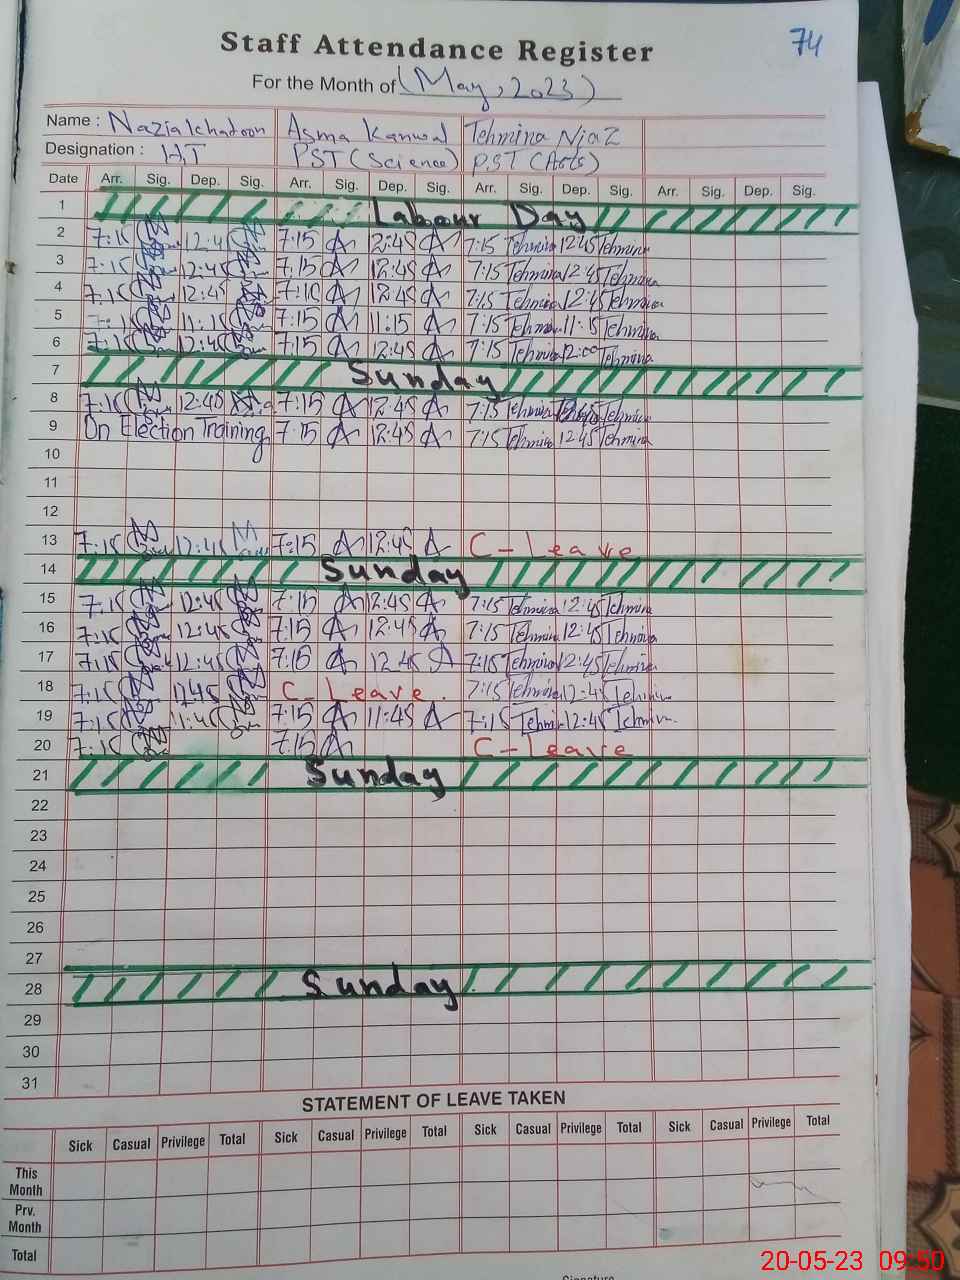 74
Staff Attendance Register
For the Month of (May, 2023)
Name : Nazia Khatoon Asma Kanwal Tehmina Niaz
Designation : HT PST (Science) P.ST (Arts)
Date Arr. Sig. Dep. Sig. Arr. Sig. Dep. Sig. Arr. Sig. Dep. Sig. Arr. Sig. Dep. Sig.
1 Labour Day
2 7:15 12:45 7:15 A 2:45 A 7:15 Tehmina 12:45 Tehmina
3 7:15 12:45 7:15 A 12:45 A 7:15 Tehmina 12:45 Tehmina
4 7:15 12:45 7:15 A 12:45 A 7:15 Tehmina 12:45 Tehmina
5 7:15 11:15 7:15 A 11:15 A 7:15 Tehmina 11:15 Tehmina
6 7:15 12:45 7:15 A 12:45 A 7:15 Tehmina 12:00 Tehmina
7 Sunday
8 7:15 12:45 7:15 A 12:45 A 7:15 Tehmina Tehmina
9 On Election Training 7:15 A 12:45 A 7:15 Tehmina 12:45 Tehmina
10
11
12
13 7:15 12:45 7:15 A 12:45 A C-Leave
14 Sunday
15 7:15 12:45 7:15 A 12:45 A 7:15 Tehmina 12:45 Tehmina
16 7:15 12:45 7:15 A 12:45 A 7:15 Tehmina 12:45 Tehmina
17 7:15 12:45 7:15 A 12:45 A 7:15 Tehmina 12:45 Tehmina
18 7:15 12:45 C-Leave. 7:15 Tehmina 12:45 Tehmina
19 7:15 11:45 7:15 A 11:45 A 7:15 Tehmina 12:45 Tehmina
20 7:15 7:15 A C-Leave
21 Sunday
22
23
24
25
26
27
28 Sunday
29
30
31
STATEMENT OF LEAVE TAKEN
Sick Casual Privilege Total Sick Casual Privilege Total Sick Casual Privilege Total Sick Casual Privilege Total
This Month
Prv. Month
Total
20-05-23 09:50